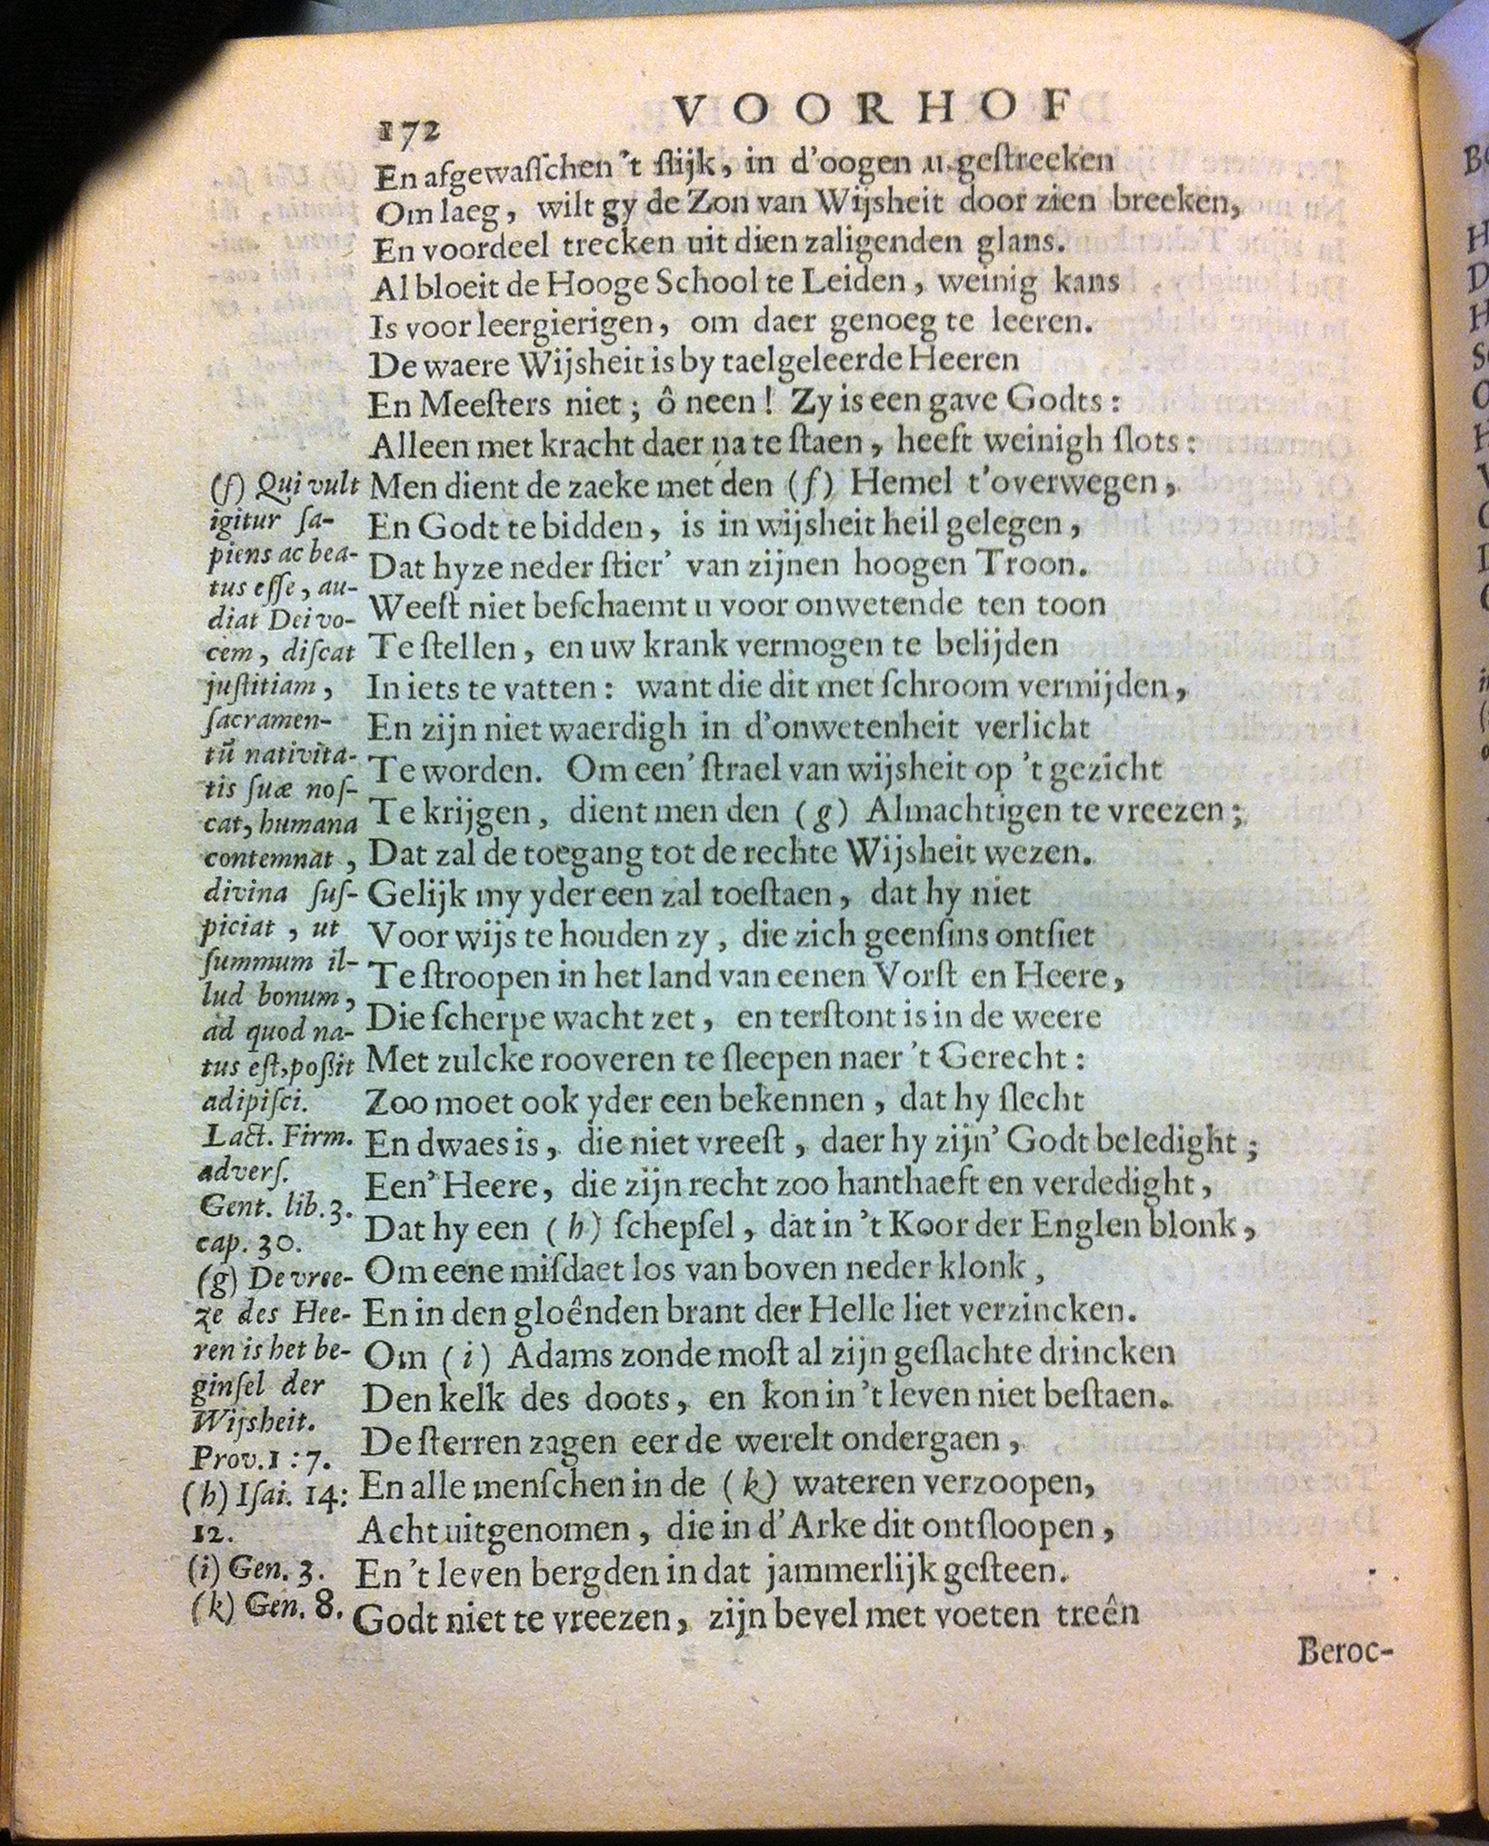 172
VOORHOF
En afgewasschen 't slijk, in d'oogen u gestreeken
Om laeg, wilt gy de Zon van Wijsheit door zien breeken,
En voordeel trecken uit dien zaligenden glans.
Al bloeit de Hooge School te Leiden, weinig kans
Is voor leergierigen, om daer genoeg te leeren.
De waere Wijsheit is by taelgeleerde Heeren
En Meeſters niet; ô neen! Zy is een gave Godts:
Alleen met kracht daer na te ſtaen, heeft weinigh ſlots:
Men dient de zaeke met den (f) Hemel t'overwegen,
En Godt te bidden, is in wijsheit heil gelegen,
Dat hyze neder ſtier' van zijnen hoogen Troon.
Weeſt niet beſchaemt u voor onwetende ten toon
Te ſtellen, en uw krank vermogen te belijden
In iets te vatten: want die dit met ſchroom vermijden,
En zijn niet waerdigh in d'onwetenheit verlicht
Te worden. Om een' ſtrael van wijsheit op 't gezicht
Te krijgen, dient men den (g) Almachtigen te vreezen;
Dat zal de toegang tot de rechte Wijsheit wezen.
Gelijk my yder een zal toeſtaen, dat hy niet
Voor wijs te houden zy, die zich geenſins ontſiet
Te ſtroopen in het land van eenen Vorſt en Heere,
Die ſcherpe wacht zet, en terſtont is in de weere
Met zulcke rooveren te ſleepen naer 't Gerecht:
Zoo moet ook yder een bekennen, dat hy ſlecht
En dwaes is, die niet vreeſt, daer hy zijn' Godt beledight;
Een' Heere, die zijn recht zoo hanthaeft en verdedight,
Dat hy een (h) ſchepſel, dat in 't Koor der Englen blonk,
Om eene miſdaet los van boven neder klonk,
En in den gloênden brant der Helle liet verzincken.
Om (i) Adams zonde moſt al zijn geſlachte drincken
Den kelk des doots, en kon in 't leven niet beſtaen.
De ſterren zagen eer de werelt ondergaen,
En alle menſchen in de (k) wateren verzoopen,
Acht uitgenomen, die in d'Arke dit ontſloopen,
En 't leven bergden in dat jammerlijk geſteen.
Godt niet te vreezen, zijn bevel met voeten treên
Beroc-
(f) Qui vult
igitur ſa-
piens ac bea-
tus eſſe, au-
diat Dei vo-
cem, diſcat
juſtitiam,
ſacramen-
tū nativita-
tis ſuæ noſ-
cat, humana
contemnat,
divina ſuſ-
piciat, ut
ſummum il-
lud bonum,
ad quod na-
tus eſt, poſſit
adipiſci.
Lact. Firm.
adverſ.
Gent. lib. 3.
cap. 30.
(g) De vree-
ze des Hee-
ren is het be-
ginſel der
Wijsheit.
Prov. 1:7.
(h) Iſai. 14:
12.
(i) Gen. 3.
(k) Gen. 8.